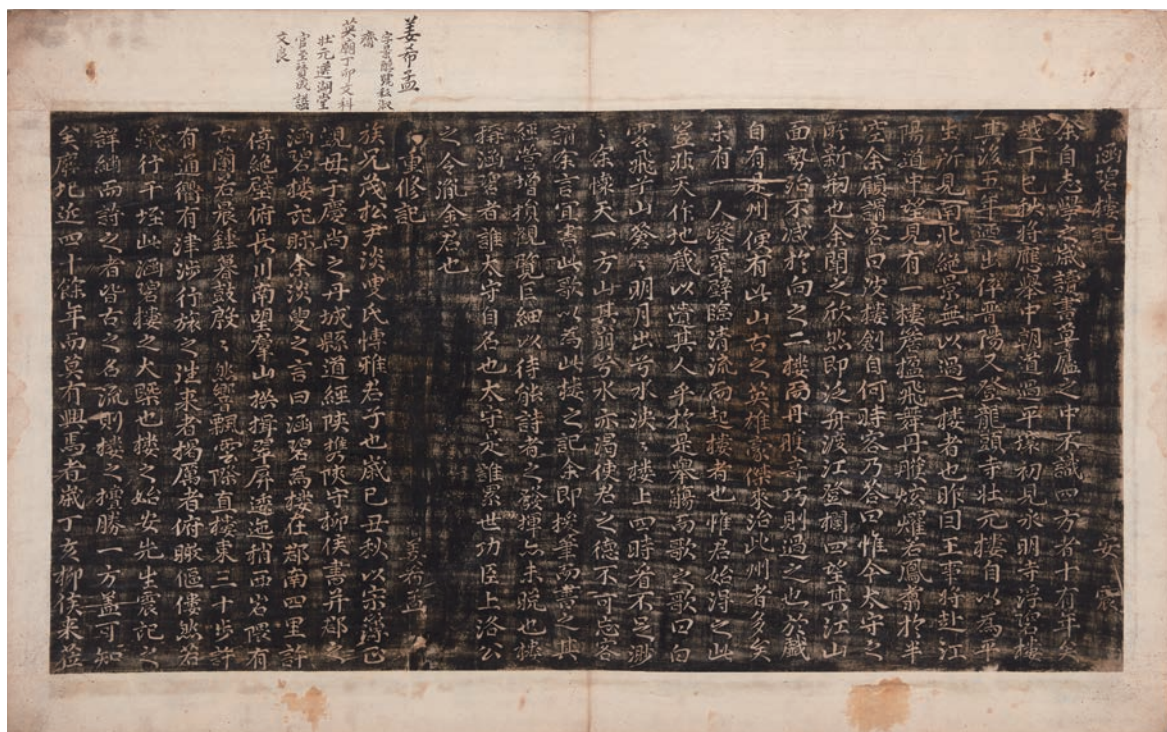 姜希孟
字景醇號私淑
齋
英廟丁卯文科
壯元選湖堂
官至贊成諡
文良
涵碧樓記 安震
余自志學之歲讀書蓽廬之中不識四方者十有年矣
越丁巳秋將應擧中朝道過平壤初見永明寺浮碧樓
其後五年適出倅晋陽又登龍頭寺壯元樓自以爲平
生所見南北絶景無以過二樓者也昨因王事將赴江
陽道中望見有一樓楹飛舞丹雘炫燿若鳳翥於半
空余顧謂客曰彼樓創自何時客乃答曰惟今太守之
所新刱也余聞之欣然即泛舟渡江登欄四望其江山
面勢殆不减於向之二樓而丹雘奇巧則過之也於戲
自有是州便有此山古之英雄豪傑來治此州者多矣
未有一人鑿翠壁臨清流而起樓者也惟君始得之此
豈非天作地藏以遺其人乎於是擧觴而歌之歌曰白
雲飛兮山蒼〻明月出兮水泱〻樓上四時看不足渺
〻余懷天一方山其崩兮水示渴使君之德不可忘客
謂余言宜書此歌以爲此樓之記余即援筆而書之其
經營增損觀覽巨細以待能詩者之發揮亦未晩也樓
稱涵碧者誰太守自名也太守是誰累世功臣上洛公
之令胤金君也
重修記 姜希孟
族兄茂松尹淡叟氏博雅君子也歲己丑秋以宗簿正
覲母于慶尙之丹城縣道經陜陜守柳侯書并郡之
涵碧樓記眎余淡叟之言曰涵碧爲樓在郡南四里許
倚絶壁俯長川南望羣山拱揖翠屏邐迤稍西岩隈有
古蘭若晨鍾暮鼓殷〻然響飄雲際直樓東三十步許
有通衢有津涉行旅之往來者揭厲者俯瞰傴僂然若
蟻行于垤此涵碧樓之大槩也樓之始安先生震記之
詳緬而詩之者皆古之名流則樓之擅勝一方盖可知
矣廢圮近四十餘年而莫有興焉者歲丁亥柳侯來莅